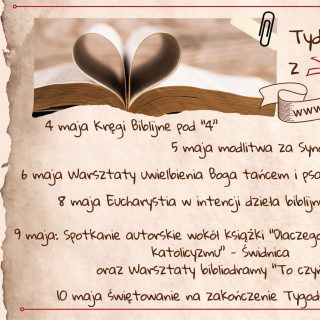 Tyd
z
www
4 maja Kręgi Biblijne pod "4"
5 maja modlitwa za Syn
6 maja Warsztaty Uwielbienia Boga tańcem i psa
8 maja Eucharystia w intencji dzieła biblijn
9 maja: Spotkanie autorskie wokół książki "Dlaczego
katolicyzmu" - Świdnica
oraz Warsztaty bibliodramy "To czy
10 maja świętowanie na zakończenie Tygod